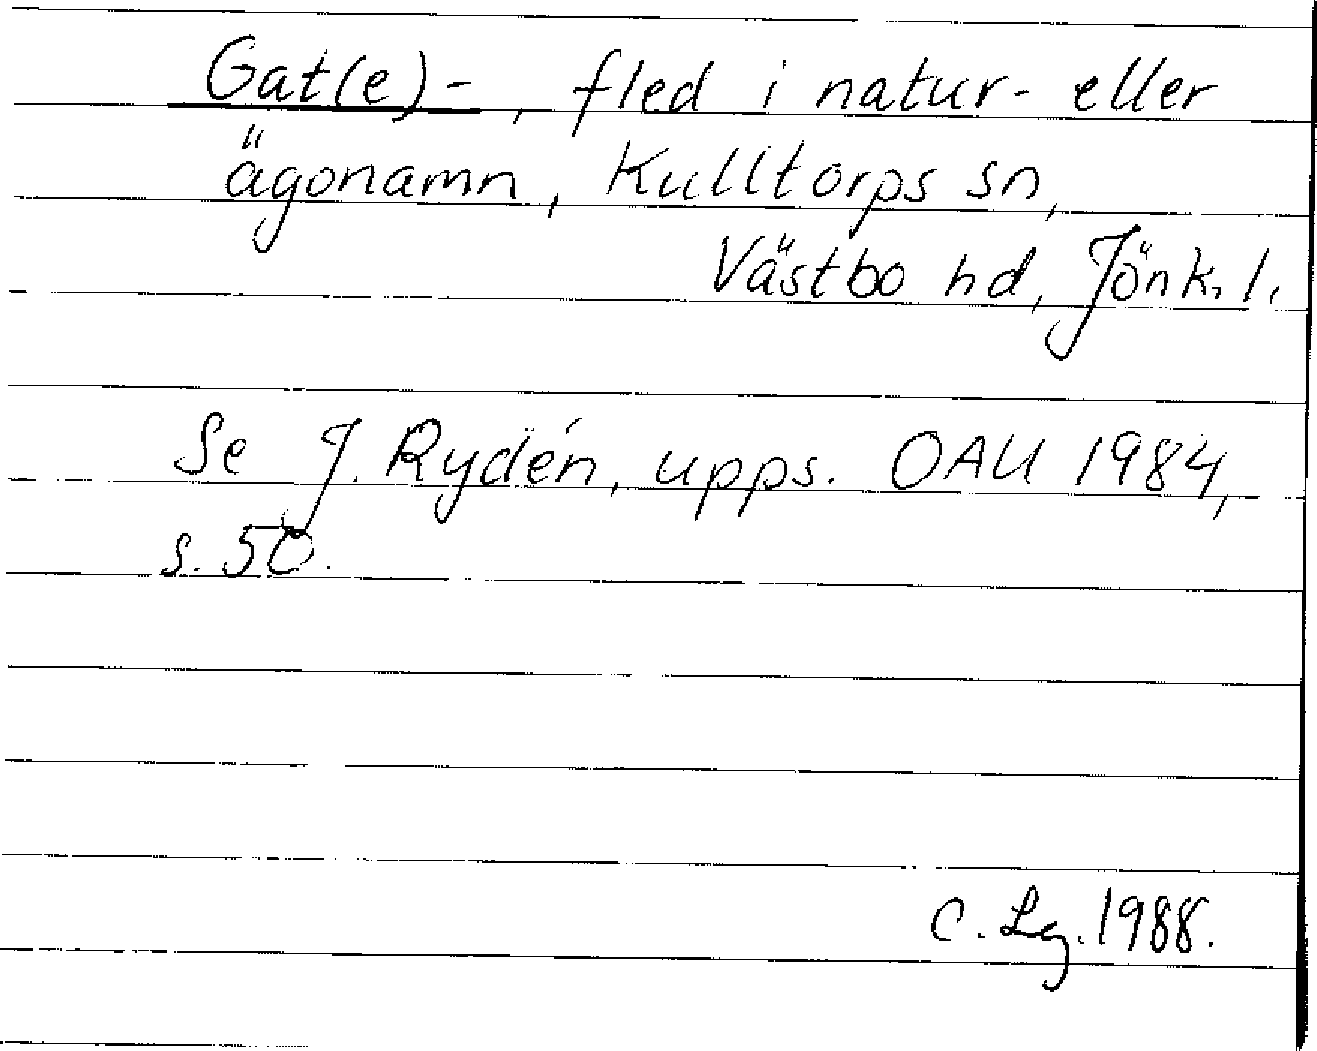 Gat(e)-, fled i natur- eller
ägonamn, Kulltorps sn,
Västbo hd, Jönk. l.
Se J. Rydén, upps. OAU 1984,
s. 50.
C. Lg. 1988.